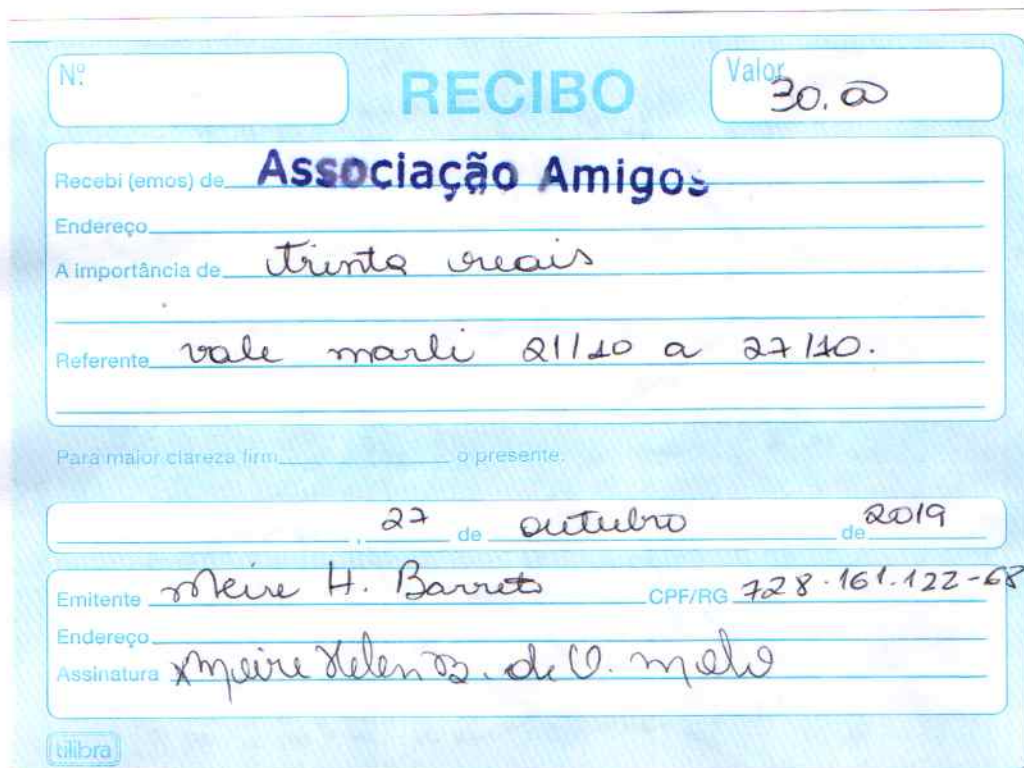 Nº
RECIBO
Valor 30.00
Recebi (emos) de Associação Amigos
Endereço
A importância de trinta reais
Referente vale marli 21/10 a 27/10.
Para maior clareza firm o presente.
, 27 de outubro de 2019
Emitente Meire H. Barreto CPF/RG 728.161.122-68
Endereço
Assinatura x Meire Helen B. de O. Melo
tilibra